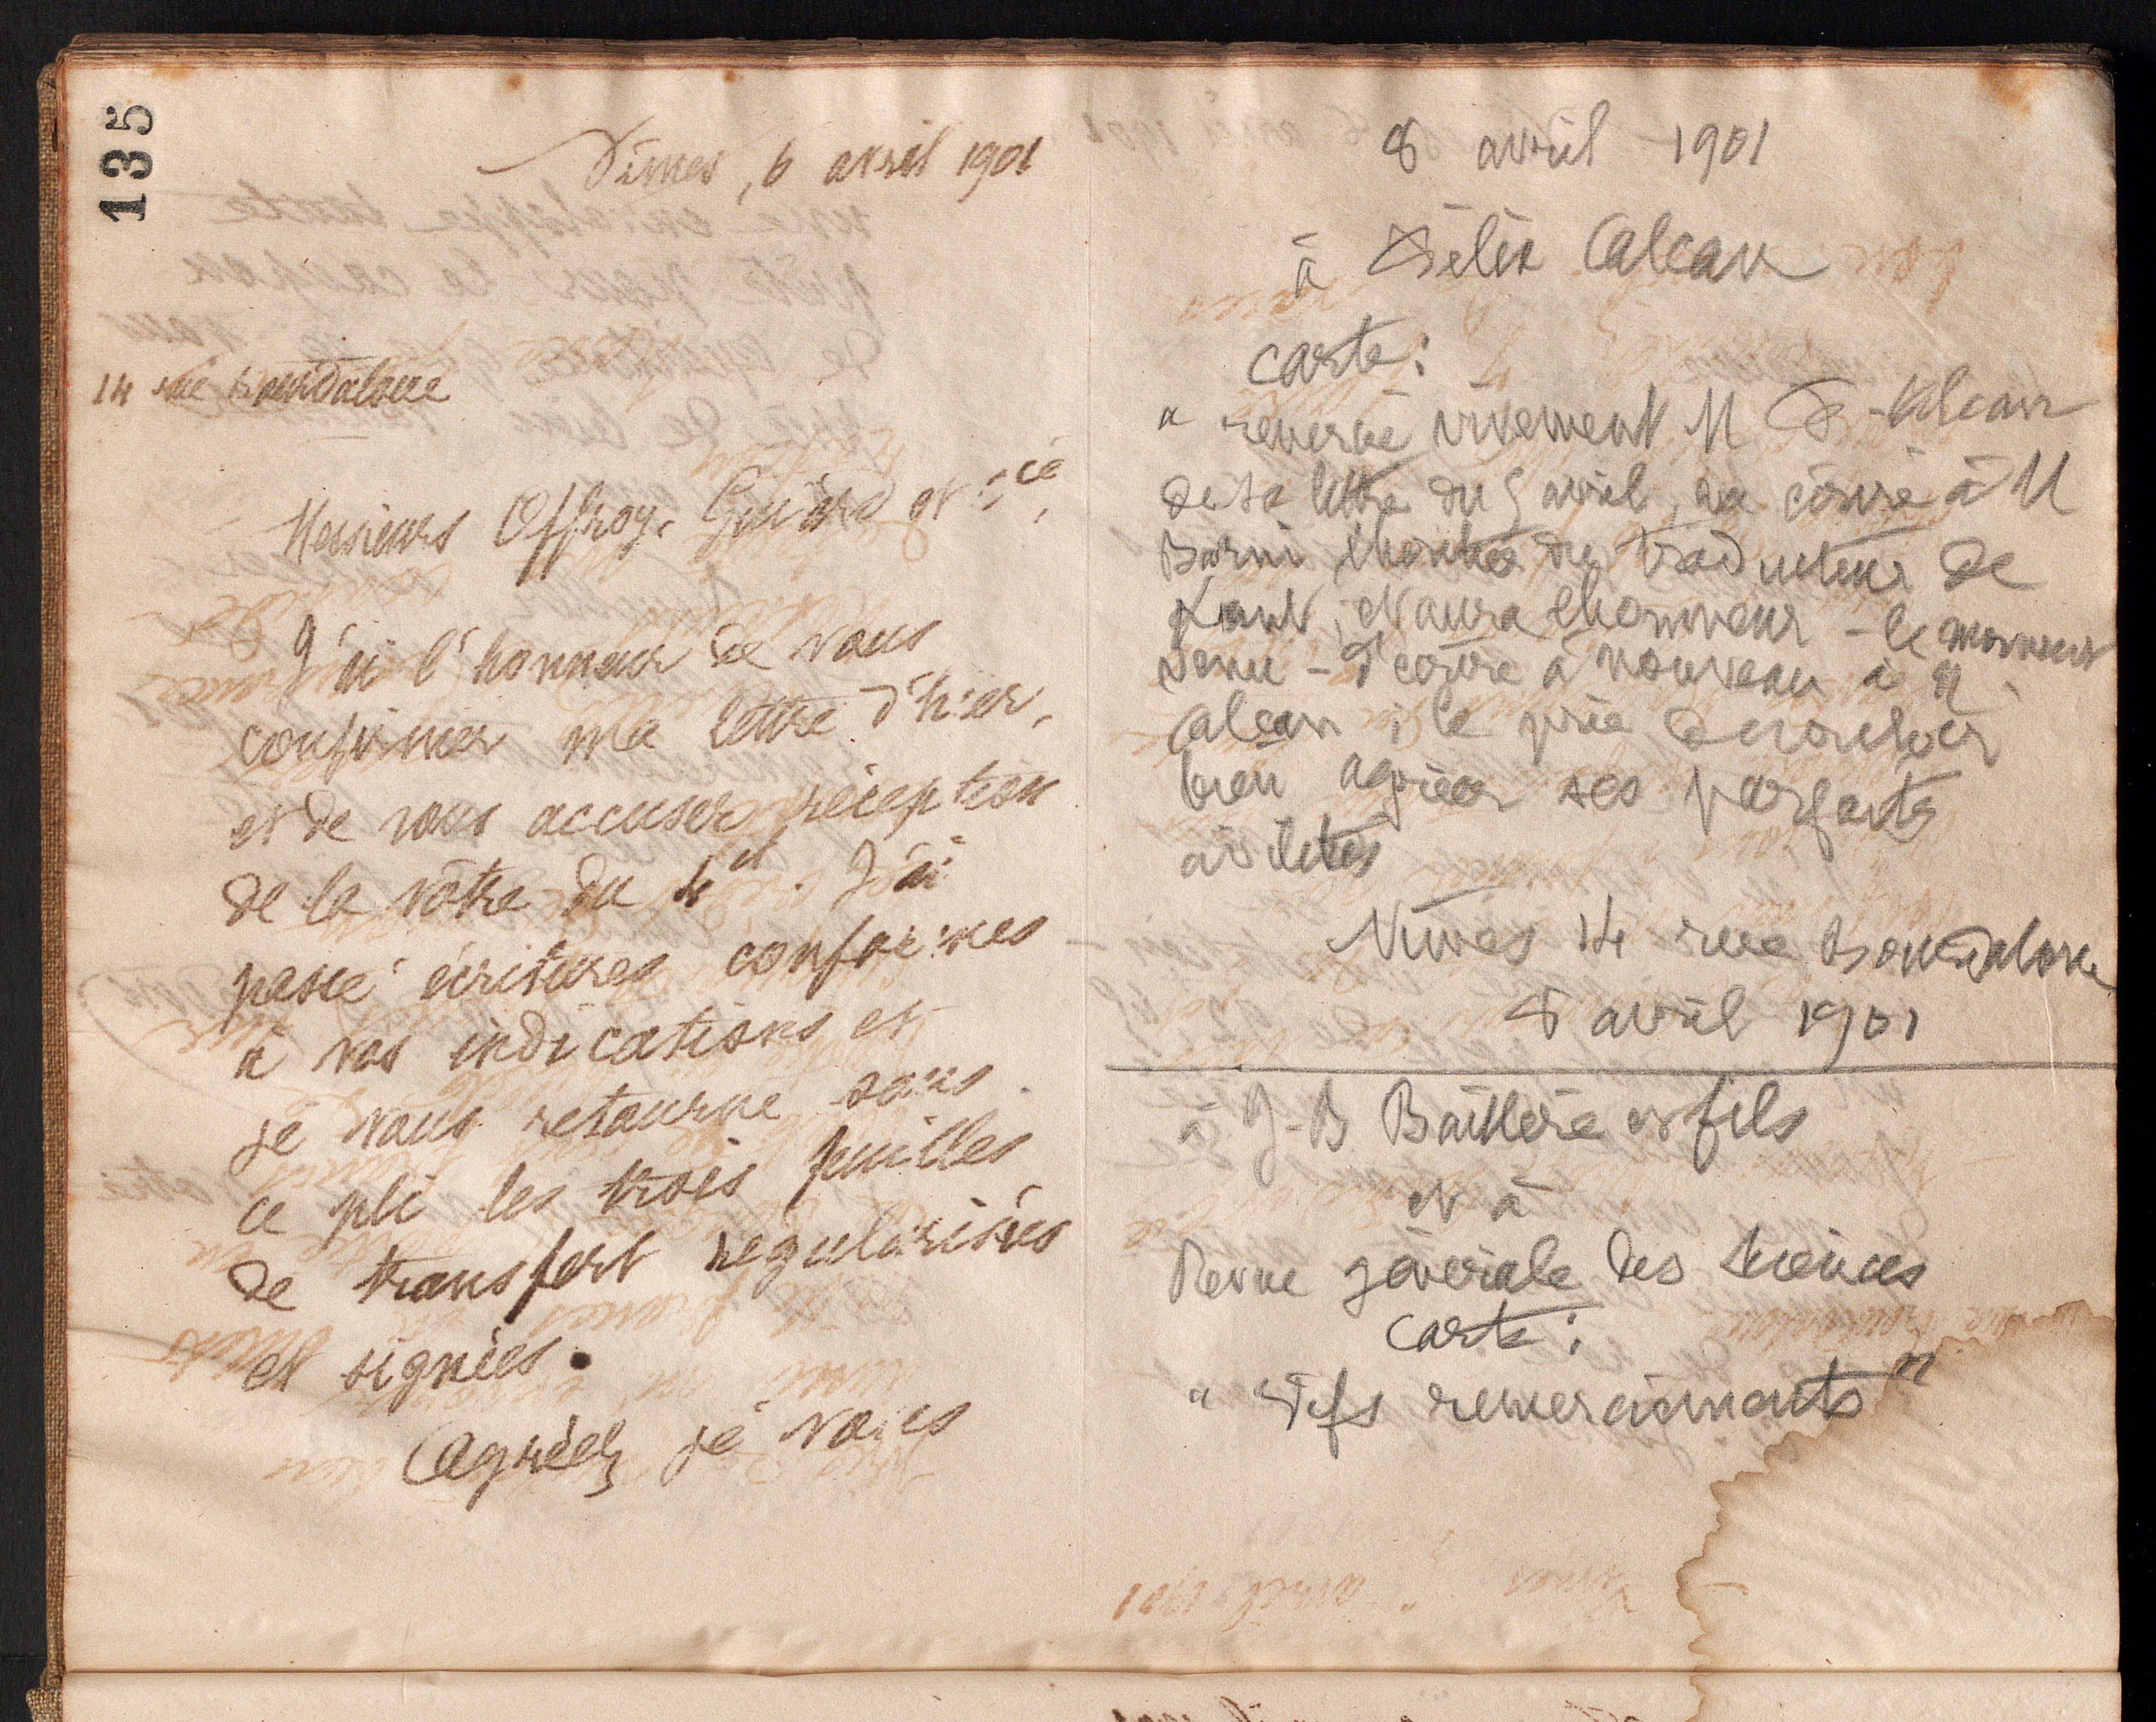 135
Nîmes, 6 avril 1901
14 rue Bourdaloue
Messieurs Offroy, Guiard et Cie,
J'ai l'honneur de vous
confirmer ma lettre d'hier,
et de vous accuser réception
de la vôtre du 4 ct. J'ai
passé écritures conformes
à vos indications et
je vous retourne sous
ce pli les trois feuilles
de transfert régularisées
et signées.
Agréez, je vous
8 avril 1901
à Félix Alcan
carte:
" remercie vivement M F-Alcan
de sa lettre du 5 avril, a écrit à M
Barni du traducteur de
Kant, et aura l'honneur - le moment
venu - d'écrire à nouveau à M.
Alcan; le prie de vouloir
bien agréer ses parfaites
civilités
Nîmes 14 rue Bourdaloue
8 avril 1901
à J-B Baillière et fils
et à
Revue générale des sciences
carte:
" vifs remerciements "